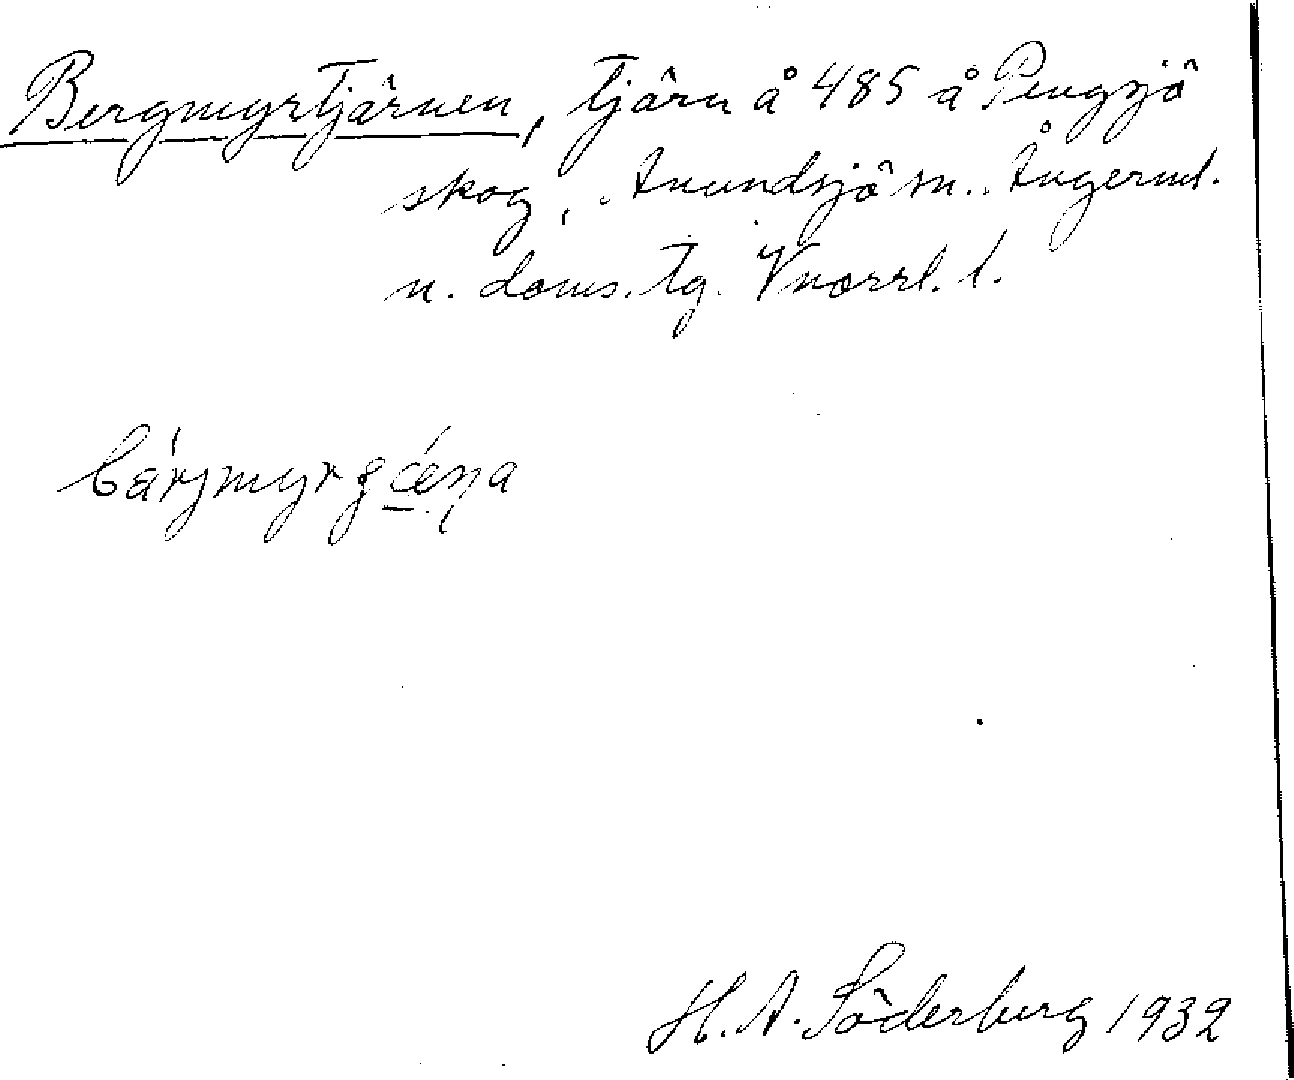 Bergmyrtjärnen, tjärn å 485 å Pengsjö
skog, Anundsjö sn. Ångerml.
n. doms. tg. Vnorrl. l.
H. A. Söderberg 1932